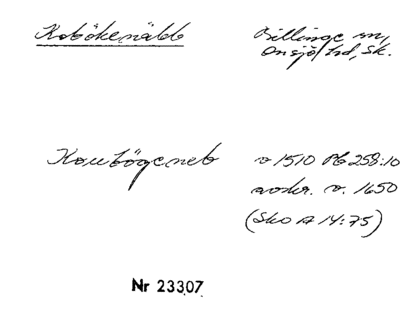 Kobökenäbb
Billinge sn,
Onsjö hd, Sk.
Kouböge neb
v 1510 Pb 258:10
avskr. v. 1650
(Sko A 14:75)
Nr 23307